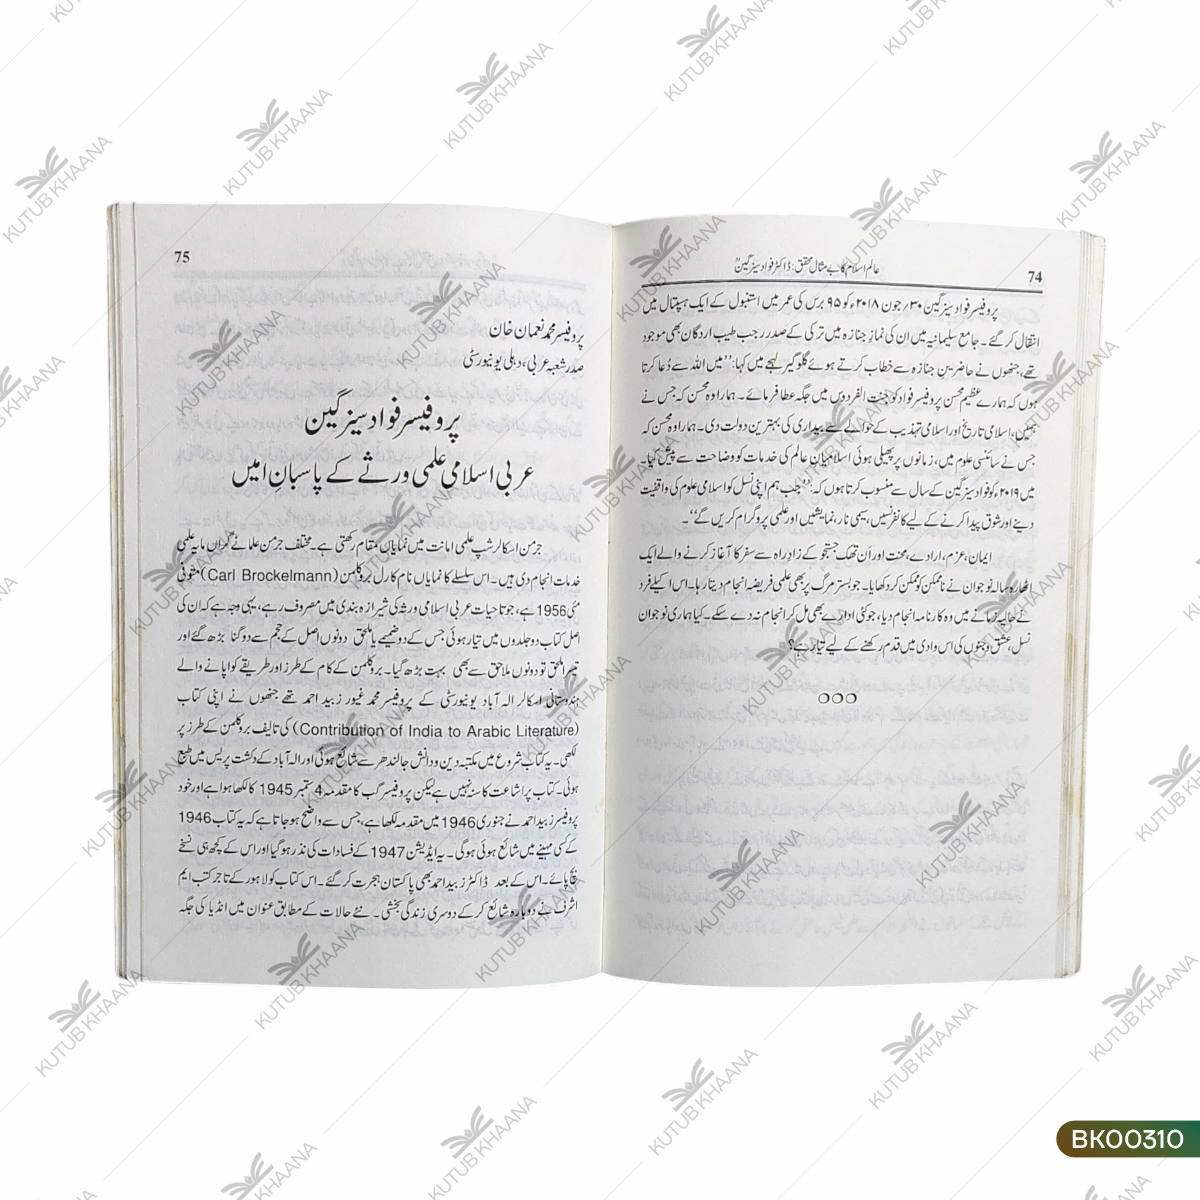 عالم اسلام کا بے مثال محقق: ڈاکٹر فواد سیزگینؒ
74
پروفیسر فواد سیزگین ۳۰؍ جون ۲۰۱۸ء کو ۹۵ برس کی عمر میں استنبول کے ایک ہسپتال میں
انتقال کر گئے۔ جامع سلیمانیہ میں ان کی نمازِ جنازہ میں ترکی کے صدر رجب طیب اردگان بھی موجود
تھے، جنھوں نے حاضرینِ جنازہ سے خطاب کرتے ہوئے گلوگیر لہجے میں کہا: ”میں اللہ سے دُعا کرتا
ہوں کہ ہمارے عظیم محسن پروفیسر فواد کو جنت الفردوس میں جگہ عطا فرمائے۔ ہمارا وہ محسن کہ جس نے
ہمیں، اسلامی تاریخ اور اسلامی تہذیب کے حوالے سے بیداری کی بہترین دولت دی۔ ہمارا وہ محسن کہ
جس نے سائنسی علوم میں، زمانوں پر پھیلی ہوئی اسلامیانِ عالم کی خدمات کو وضاحت سے پیش کیا۔
میں ۲۰۱۹ء کو فواد سیزگین کے سال سے منسوب کرتا ہوں کہ: ”جب ہم اپنی نسل کو اسلامی علوم کی واقفیت
دینے اور شوق پیدا کرنے کے لیے کانفرنسیں، سیمی نار، نمایشیں اور علمی پروگرام کریں گے“۔
ایمان، عزم، ارادے، محنت اور اَن تھک جستجو کے زادِ راہ سے سفر کا آغاز کرنے والے ایک
اٹھارہ سالہ نوجوان نے ناممکن کو ممکن کر دکھایا۔ جو بسترِ مرگ پر بھی علمی فریضہ انجام دیتا رہا۔ اس اکیلے فرد
نے حالیہ زمانے میں وہ کارنامہ انجام دیا، جو کئی ادارے بھی مل کر انجام نہ دے سکے۔ کیا ہماری نوجوان
نسل، عشق و جنوں کی اس وادی میں قدم رکھنے کے لیے تیار ہے؟
○○○
75
پروفیسر محمد نعمان خان
صدر شعبہ عربی، دہلی یونیورسٹی
پروفیسر فواد سیزگین
عربی اسلامی علمی ورثے کے پاسبانِ امیں
جرمن اسکالر شپ علمی امانت میں نمایاں مقام رکھتی ہے۔ مختلف جرمن علما نے گراں مایہ علمی
خدمات انجام دی ہیں۔ اس سلسلے کا نمایاں نام کارل بروکلمن (Carl Brockelmann) متوفی
مئی 1956 ہے، جو تا حیات عربی اسلامی ورثہ کی شیرازہ بندی میں مصروف رہے، یہی وجہ ہے کہ ان کی
اصل کتاب دو جلدوں میں تیار ہوئی جس کے دو ضمیمے یا ملحق دونوں اصل کے حجم سے دو گنا بڑھ گئے اور
تیسرا ملحق تو دونوں ملاحق سے بھی بہت بڑھ گیا۔ بروکلمن کے کام کے طرز اور طریقے کو اپانے والے
ہندوستانی اسکالر الہ آباد یونیورسٹی کے پروفیسر محمد غیور زبید احمد تھے جنھوں نے اپنی کتاب
(Contribution of India to Arabic Literature) کی تالیف بروکلمن کے طرز پر
لکھی۔ یہ کتاب شروع میں مکتبہ دین و دانش جالندھر سے شائع ہوئی اور الہ آباد کے دکشت پریس میں طبع
ہوئی۔ کتاب پر اشاعت کا سنہ نہیں ہے لیکن پروفیسر گب کا مقدمہ 4 ستمبر 1945 کا لکھا ہوا ہے اور خود
پروفیسر زبید احمد نے جنوری 1946 میں مقدمہ لکھا ہے، جس سے واضح ہو جاتا ہے کہ یہ کتاب 1946
کے کسی مہینے میں شائع ہوئی ہوگی۔ یہ ایڈیشن 1947 کے فسادات کی نذر ہو گیا اور اس کے کچھ ہی نسخے
بچ پائے۔ اس کے بعد ڈاکٹر زبید احمد بھی پاکستان ہجرت کر گئے۔ اس کتاب کو لاہور کے تاجر کتب ایم
اشرف نے دوبارہ شائع کر کے دوسری زندگی بخشی۔ نئے حالات کے مطابق عنوان میں انڈیا کی جگہ
KUTUB KHAANA
BK00310